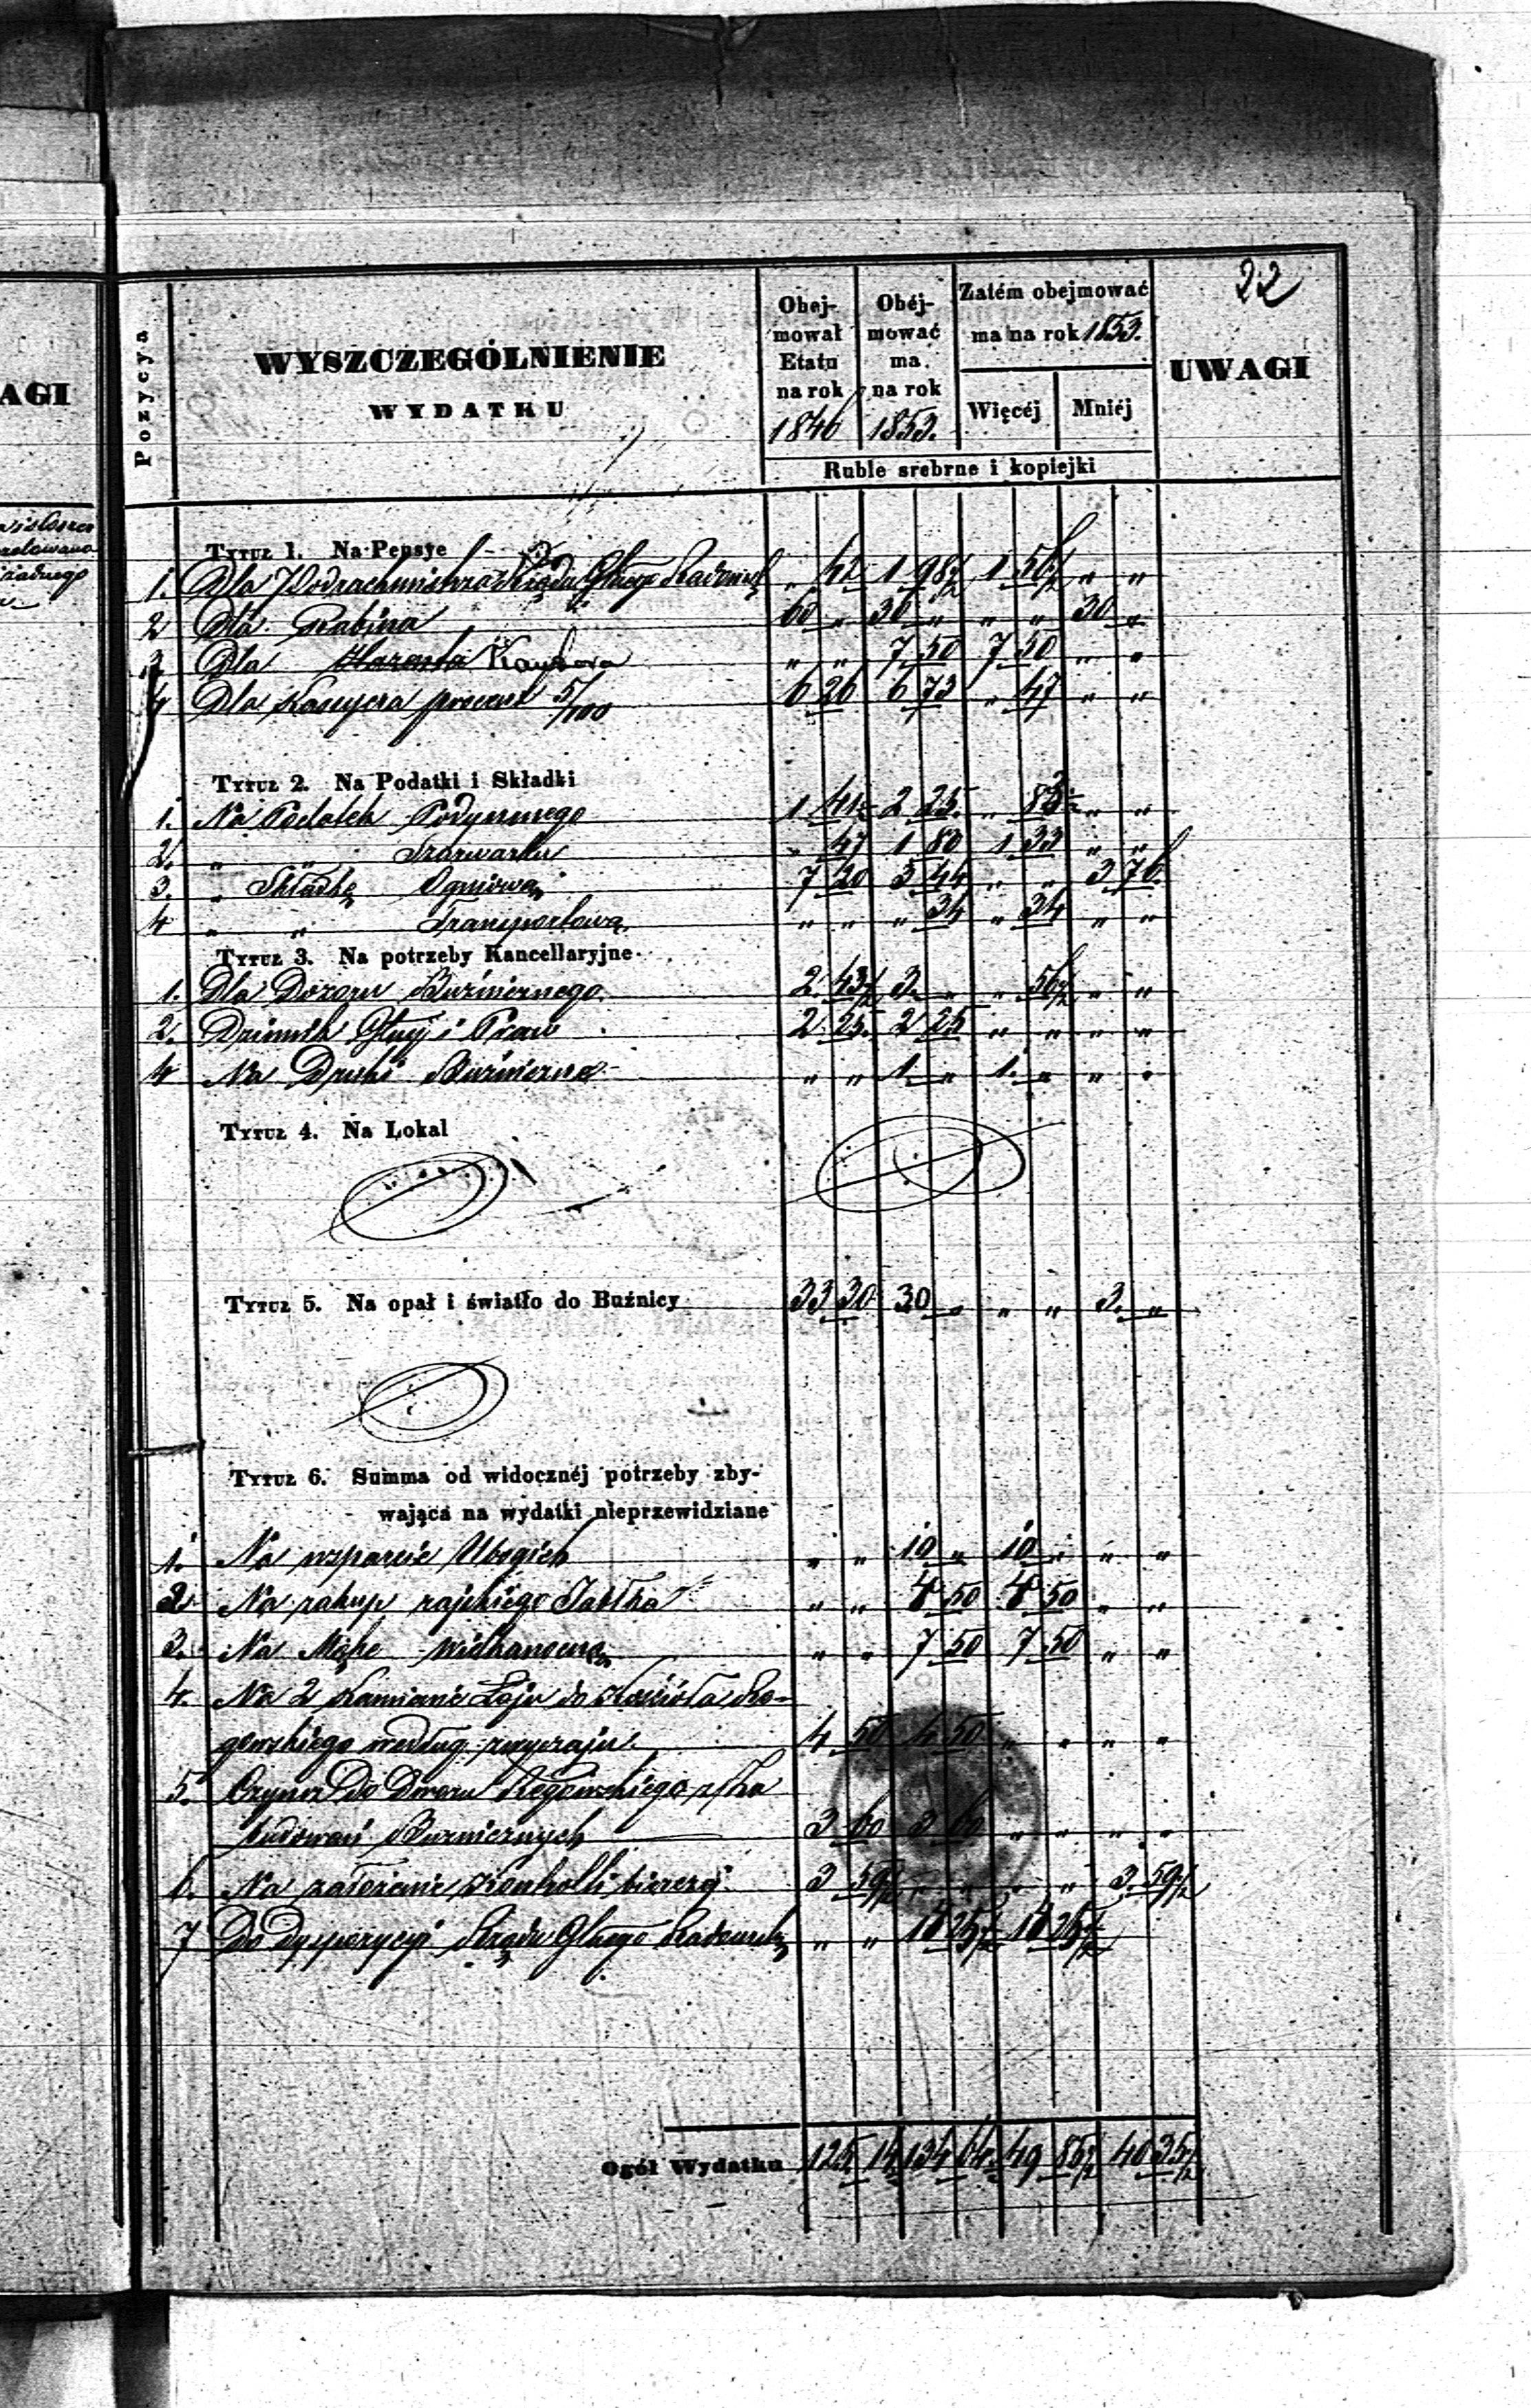 AGI
22
Pozycya
WYSZCZEGÓLNIENIE
WYDATKU
Obej-
mował
Etatu
na rok
1846
Obéj-
mować
ma
na rok
1853.
Zatém obejmować
ma na rok 1853.
Więcéj
Mniéj
UWAGI
Ruble srebrne i kopiejki
Tytuł 1. Na Pensye
1. Dla Podrachmistrza Rządu Glnego Radomsk „ 42 1 98½ 1 56½ „ „
2 Dla Rabina 60 „ 30 „ „ „ 30 „
3 Dla Kantora „ „ 7 50 7 50 „ „
4 Dla Kassyera procent 5/100 6 26 6 73 „ 47 „ „
Tytuł 2. Na Podatki i Składki
1. Na Podatek Podymnego 1 41½ 2 25 „ 83½ „ „
2. „ „ Szarwarku „ 47 1 80 1 33 „ „
3. „ Składkę Ogniową 7 20 3 44 „ „ 3 76
4 „ „ Transportową „ „ „ 34 „ 34 „ „
Tytuł 3. Na potrzeby Kancellaryjne
1. Dla Dozoru Buźnicznego 2 43½ 3 „ „ 56½ „ „
2. Dziennik Glny i Praw 2 25 2 25 „ „ „ „
4 Na Druki Buźniczne „ „ 1 „ 1 „ „ „
Tytuł 4. Na Lokal
Tytuł 5. Na opał i światło do Buźnicy 33 30 30 „ „ „ 3 „
Tytuł 6. Summa od widocznéj potrzeby zby-
wająca na wydatki nieprzewidziane
1. Na wsparcie Ubogich „ „ 10 „ 10 „ „ „
2 Na zakup rajskiego Jabłka „ „ 4 50 4 50 „ „
3. Na Mąkę wielkanocną „ „ 7 50 7 50 „ „
4. Na 2 Kamienie Łoju do Kościoła Ro-
gowskiego według zwyczaju 4 50 4 50 „ „ „ „
5. Czynsz do Dworu Rogowskiego z
budowań Buźnicznych 3 60 3 60 „ „ „ „
6. Na założenie Kontrolli bierczej 3 59½ „ „ „ „ 3 59½
7 Do dyspozycyi Rządu Glnego Radomsk „ „ 14 25½ 14 25½
Ogół Wydatku 125 14 134 64 49 85½ 40 35½